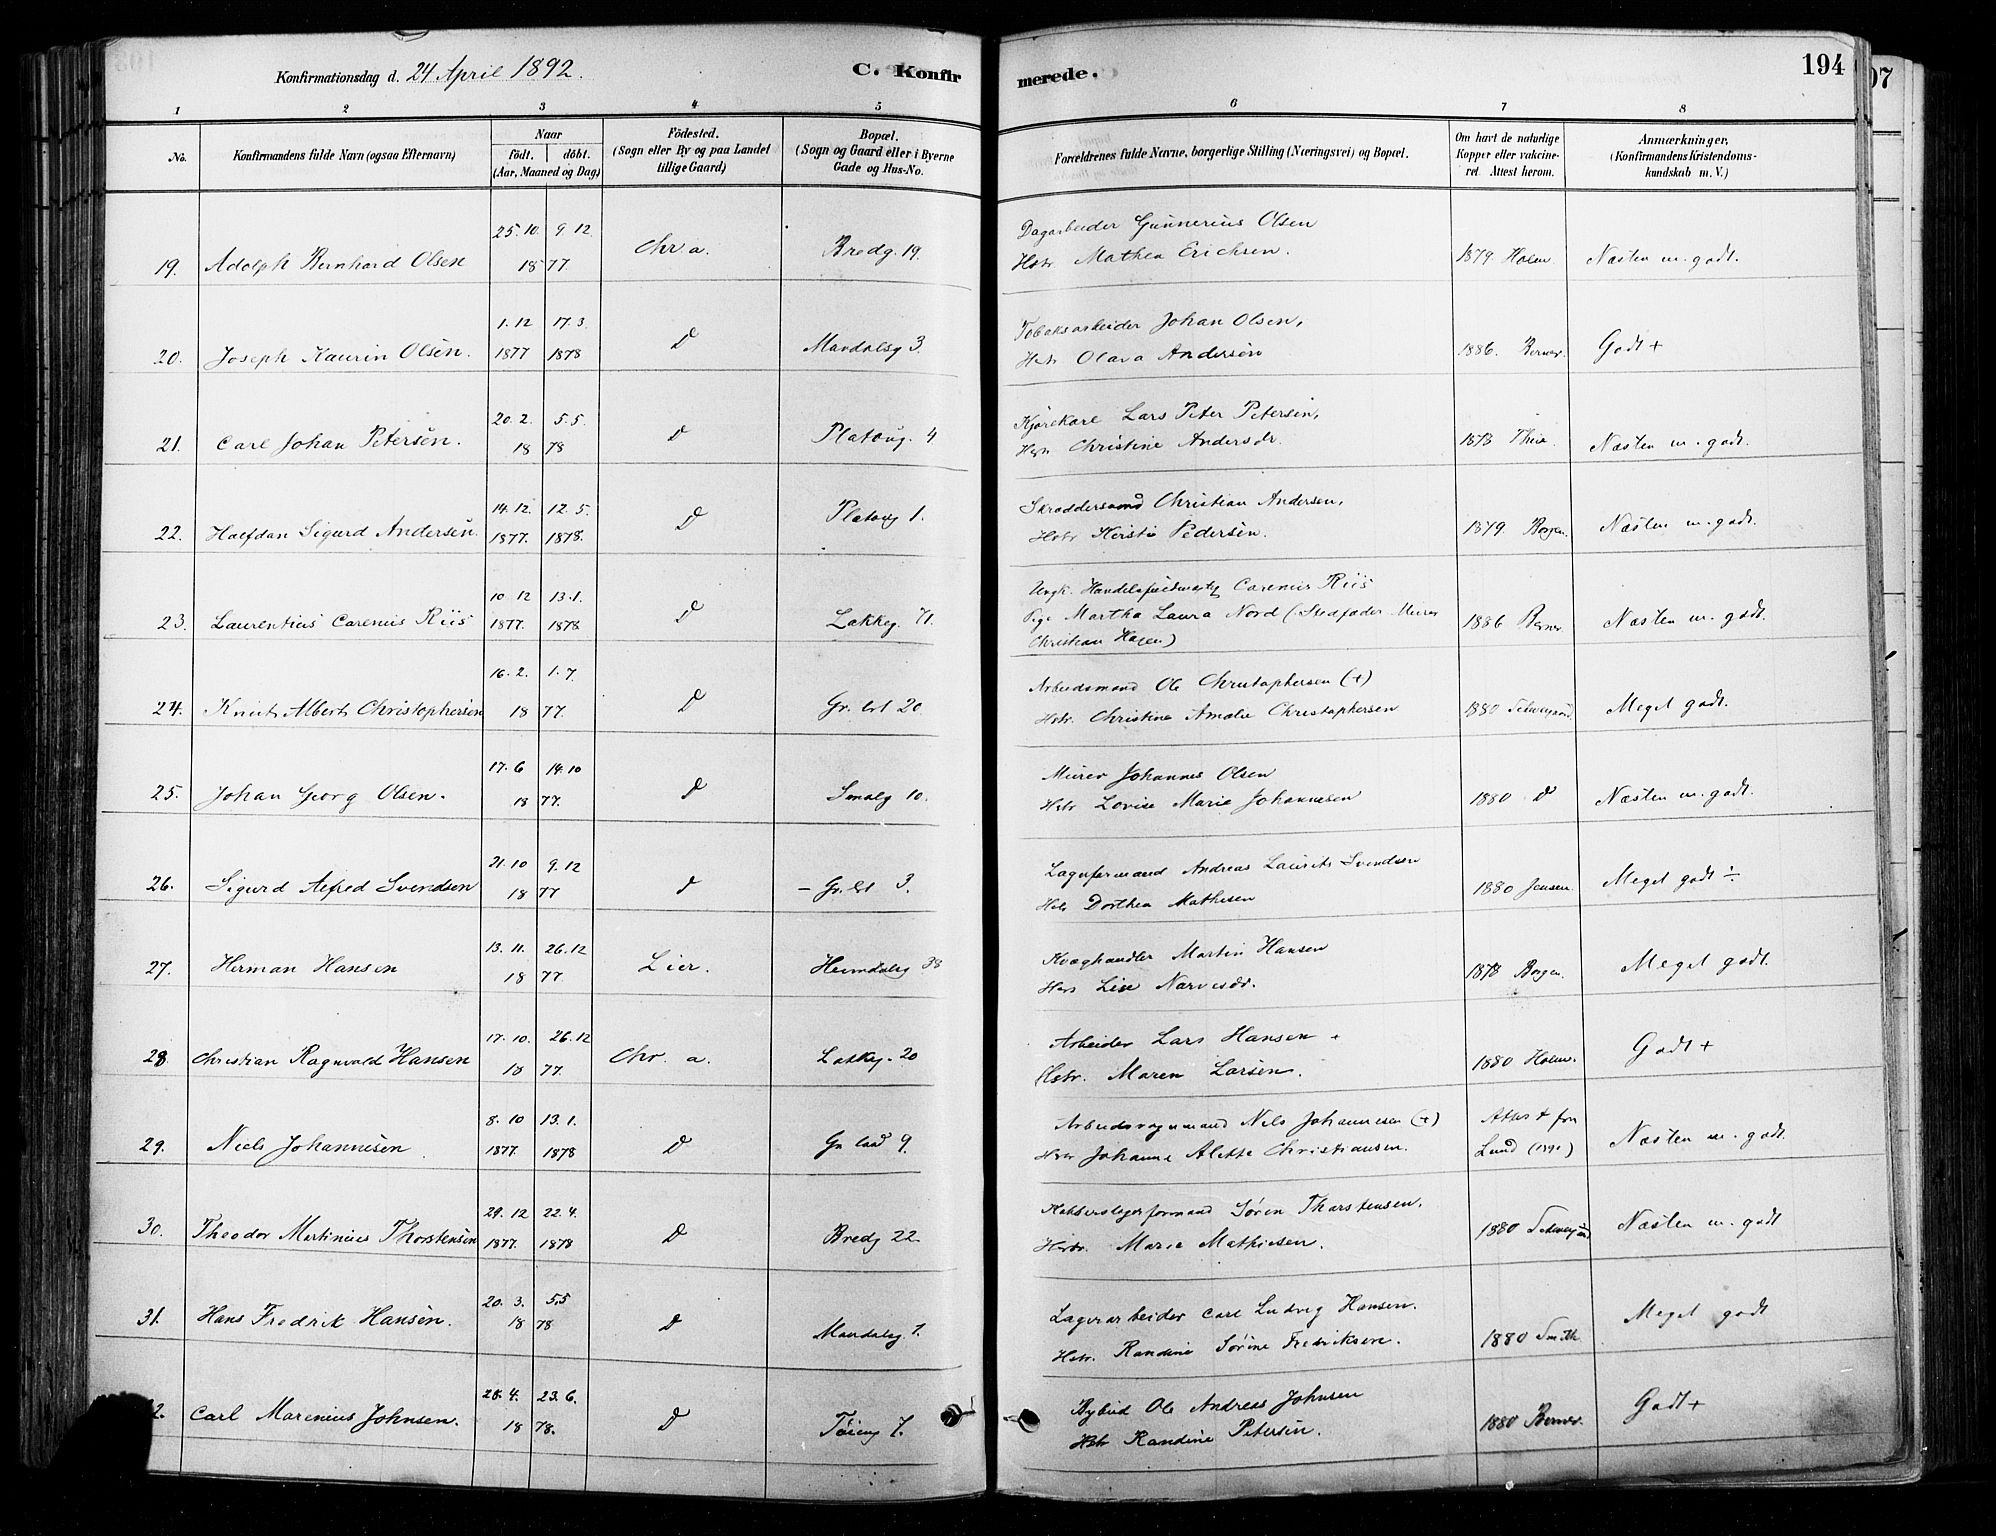 Konfirmationsdag d. 24 April 1892. C. Konfirmerede. 194
1 2 3 4 5 6 7 8
No. Konfirmandens fulde Navn (ogsaa Efternavn) Naar födt. döbt. (Aar, Maaned og Dag) Födested. (Sogn eller By og paa Landet tillige Gaard) Bopæl. (Sogn og Gaard eller i Byerne Gade og Hus-No. Forældrenes fulde Navne, borgerlige Stilling (Næringsvei) og Bopæl. Om havt de naturlige Kopper eller vakcineret. Attest herom. Anmærkninger, (Konfirmandens Kristendomskundskab m. V.)
19. Adolph Bernhard Olsen 25.10. 9.12. 18 77. Chr a. Bredg. 19. Dagarbeider Gunnerius Olsen
Hstr Mathea Erichsen. 1879. Holm. Næsten m. godt.
20. Joseph Kaurin Olsen. 1.12 1877 17.3. 1878 D Mandalsg 3. Tobaksarbeider Johan Olsen,
Hstr Olava Andersen 1886. Berner. Godt +
21. Carl Johan Petersen. 20.2. 5.5. 18 78 D Platoug. 4 Kjørekarl Lars Peter Petersen,
Hstr Christine Andersdr. 1878 Næsten m. godt.
22. Halfdan Sigurd Andersen. 14.12. 1877. 12.5. 1878. D Platoug 1. Skræddersvend Christian Andersen,
Hstr Kirstie Pedersen. 1879. Borgen. Næsten m. godt.
23. Laurentius Carenius Riis 10.12 1877. 13.1. 1878 D Lakkeg. 71. Ungk. Carenius Riis
Pige Martha Laura Nord (Stedfader Murer
Christian Hagen) 1886 Berner. Næsten m. godt.
24. Knut Albert Christophersen 16.2. 1.7. 18 77. D Gr. lrl 20. Arbeidsmand Ole Christophersen (+)
Hstr. Christine Amalie Christophersen 1880 Meget godt.
25. Johan Georg Olsen. 17.6 14.10 18 77. D Smalg 10. Murer Johannes Olsen
Hstr Lovise Marie Johannesen 1880 D Næsten m. godt.
26. Sigurd Alfred Svendsen 21.10 9.12 18 77 D - Gr. lrl 3. Lagerformand Andreas Laurits Svendsen
Hstr Dorthea Mathisen 1880 Jensen. Meget godt ÷
27. Herman Hansen 13.11. 26.12 18 77. Lier. Heimdalsg 38 Kvæghandler Martin Hansen
Hstr Lise Narvesdr. 1878 Borgen. Meget godt.
28 Christian Ragnvald Hansen 17.10. 26.12 18 77. Chr. a. Lakkeg. 20 Arbeider Lars Hansen +
Hstr. Maren Larsen. 1880 Holm. Godt +
29. Niels Johannesen 8.10 1877. 13.1. 1878 D 9. Nils Johannesen (+)
Hstr Johanne Alette Christiansen. Attest fra
Lund (1891) Næsten m. godt.
30. Theodor Martinius Thorstensen 29.12 1877. 22.4. 1878 D Bredg 22. Kobberslagerformand Søren Thorstensen,
Hstr. Marie Mathiesen. 1880 Næsten m. godt
31. Hans Fredrik Hansen. 20.3. 5.5 18 78 D Mandalsg 7. Lagerarbeider Carl Ludvig Hansen.
Hstr. Randine Sørine Fredriksen. 1880 Smith Meget godt
2. Carl Marenius Johnsen. 28.4. 23.6. 18 78. D Tøieng 7. Bybud Ole Andreas Johnsen
Hstr Randine Petersen. 1880 Berner. Godt +